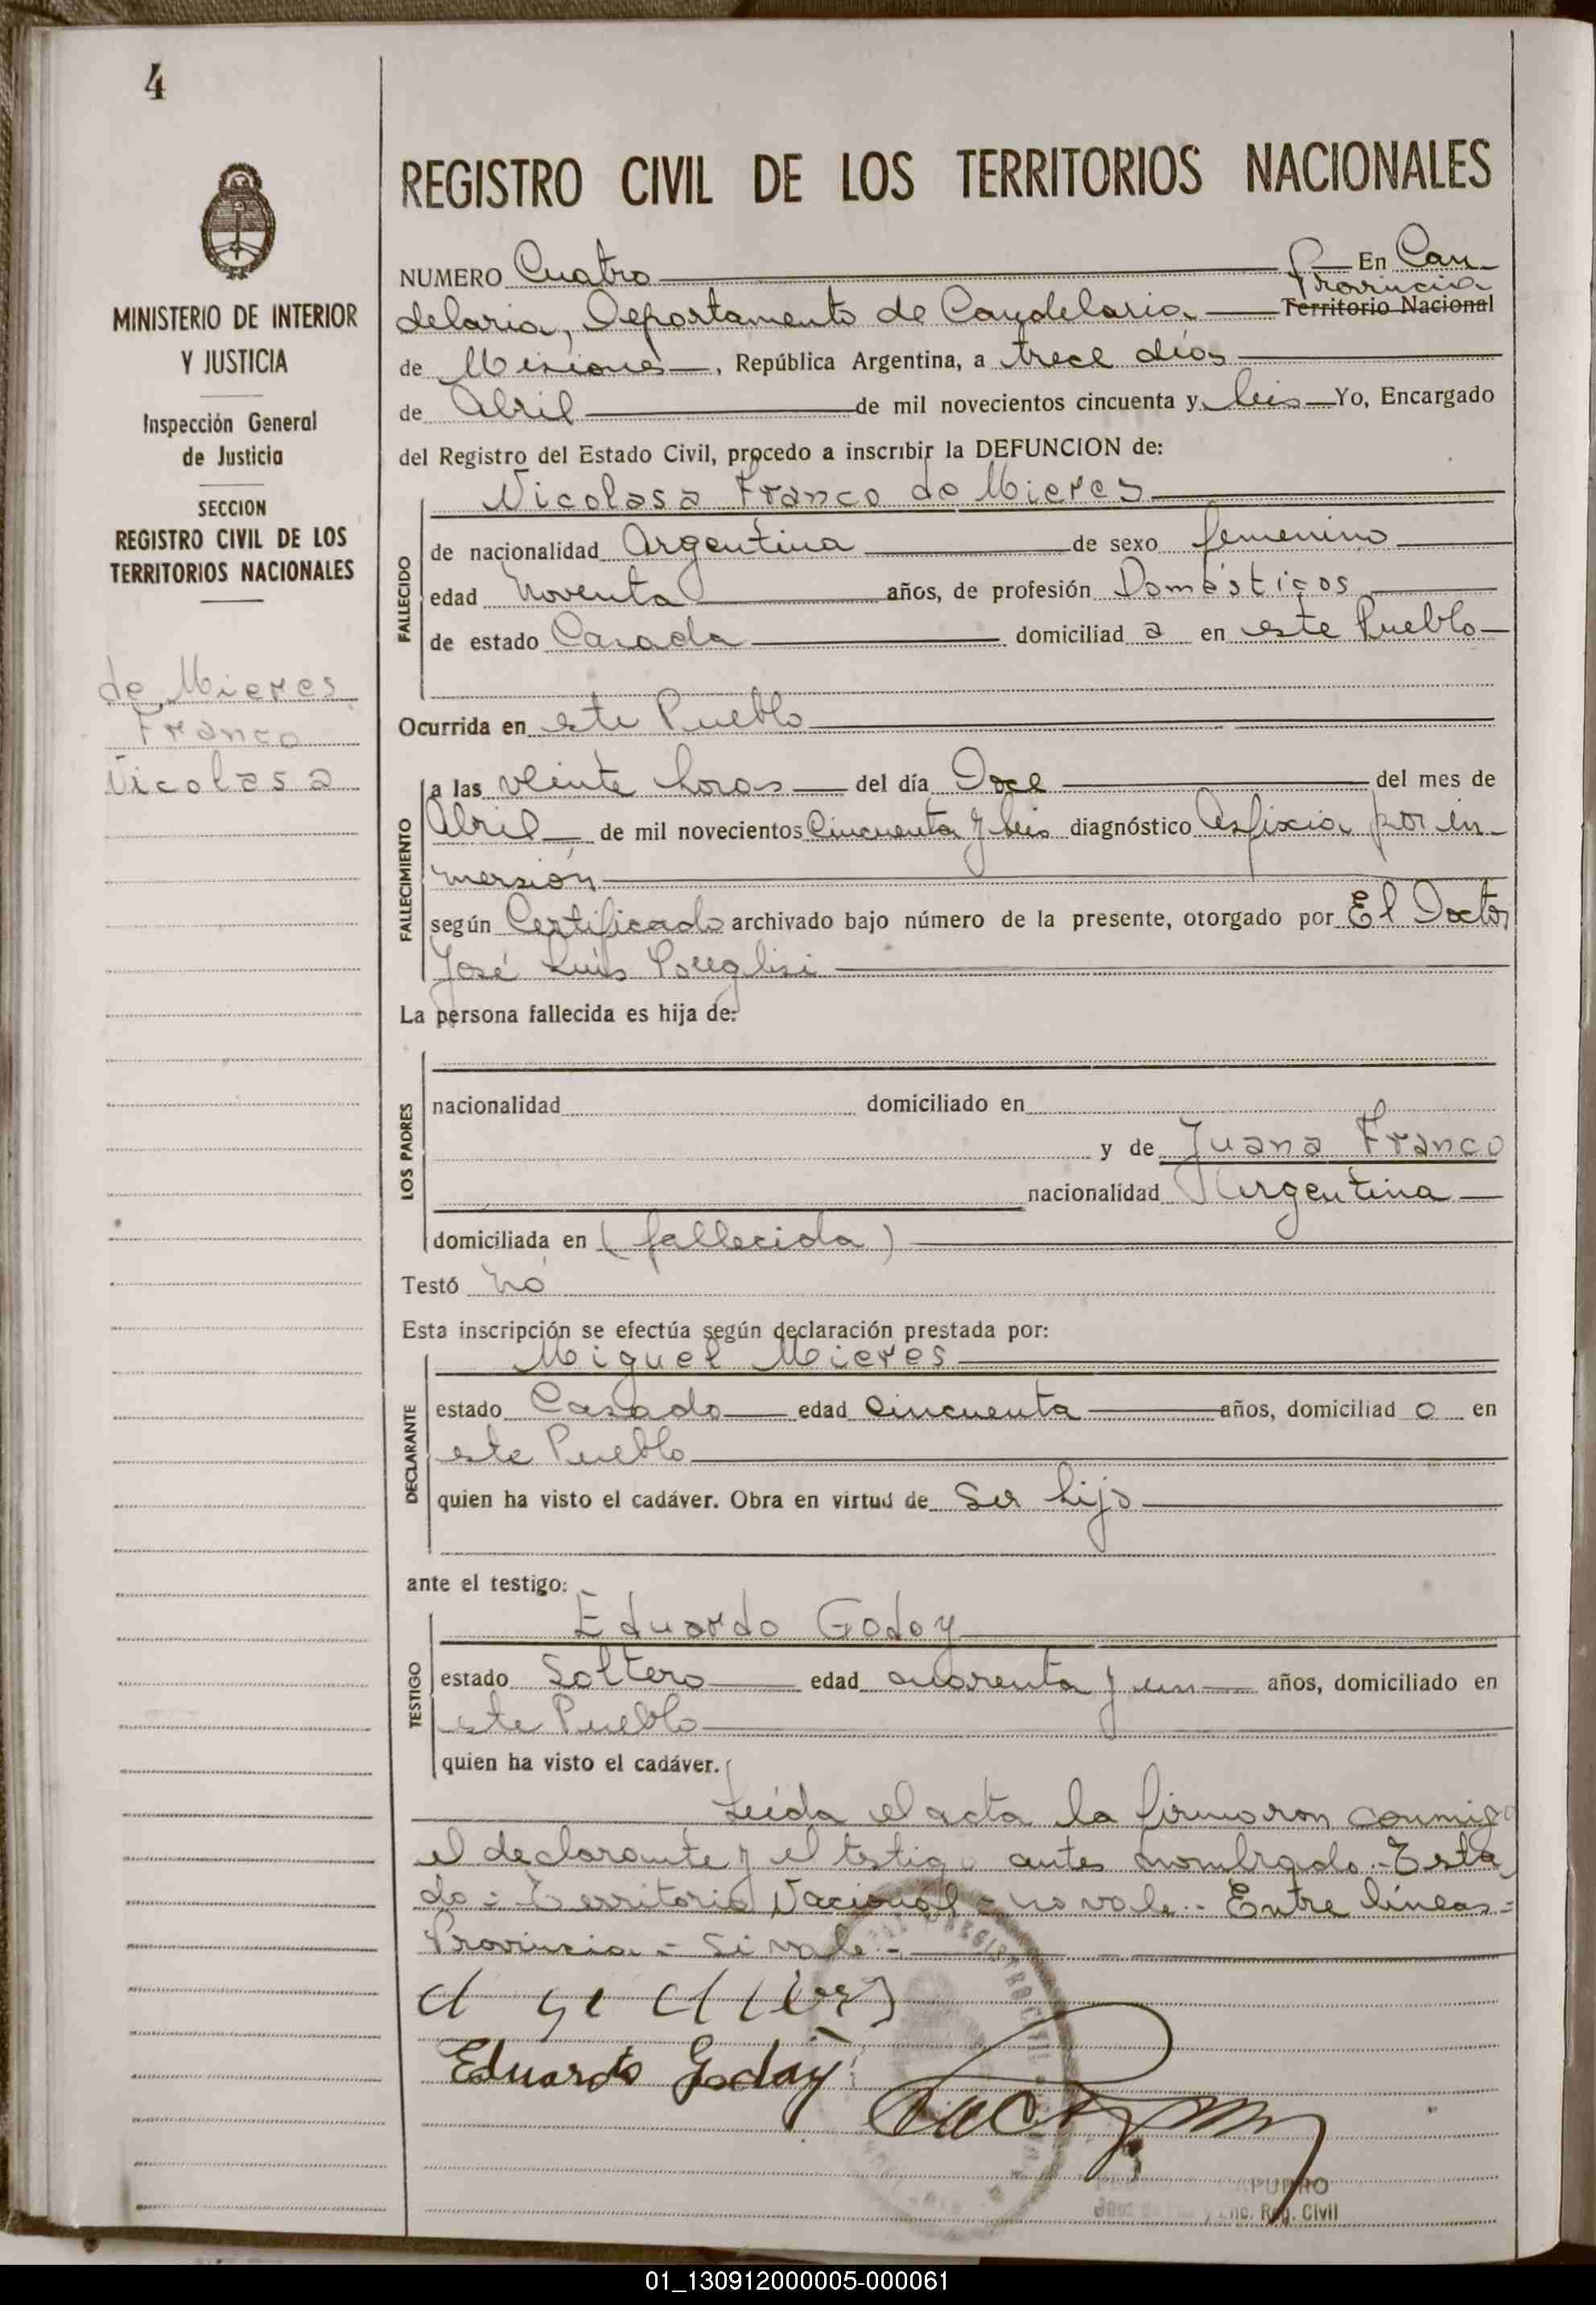 4
MINISTERIO DE INTERIOR
Y JUSTICIA
Inspección General
de Justicia
SECCION
REGISTRO CIVIL DE LOS
TERRITORIOS NACIONALES
de Mieres
Franco
Nicolasa
REGISTRO CIVIL DE LOS TERRITORIOS NACIONALES
NUMERO Cuatro En Can
Provincia
delaria, Departamento de Candelaria Territorio Nacional
de Misiones, República Argentina, a trece días
de Abril de mil novecientos cincuenta y seis Yo, Encargado
del Registro del Estado Civil, procedo a inscribir la DEFUNCION de:
Nicolasa Franco de Mieres
FALLECIDO
de nacionalidad Argentina de sexo femenino
edad Noventa años, de profesión Domésticos
de estado Casada domiciliad a en este Pueblo
Ocurrida en este Pueblo
FALLECIMIENTO
a las veinte horas del día Doce del mes de
Abril de mil novecientos Cincuenta y seis diagnóstico Asfixia por in-
mersión
según Certificado archivado bajo número de la presente, otorgado por El Doctor
José Luis Puglisi
La persona fallecida es hija de:
LOS PADRES
nacionalidad domiciliado en
y de Juana Franco
nacionalidad Argentina
domiciliada en (fallecida)
Testó no
Esta inscripción se efectúa según declaración prestada por:
Miguel Mieres
DECLARANTE
estado Casado edad cincuenta años, domiciliad o en
este Pueblo
quien ha visto el cadáver. Obra en virtud de ser hijo
ante el testigo:
Eduardo Godoy
TESTIGO
estado Soltero edad cuarenta y un años, domiciliado en
este Pueblo
quien ha visto el cadáver.
Leída el acta la firmaron conmigo
el declarante y el testigo antes nombrado.-Testa
do = Territorio Nacional = no vale.- Entre líneas =
Provincia = Si vale.-
Eduardo Godoy
Enc. Reg. Civil
01_130912000005-000061